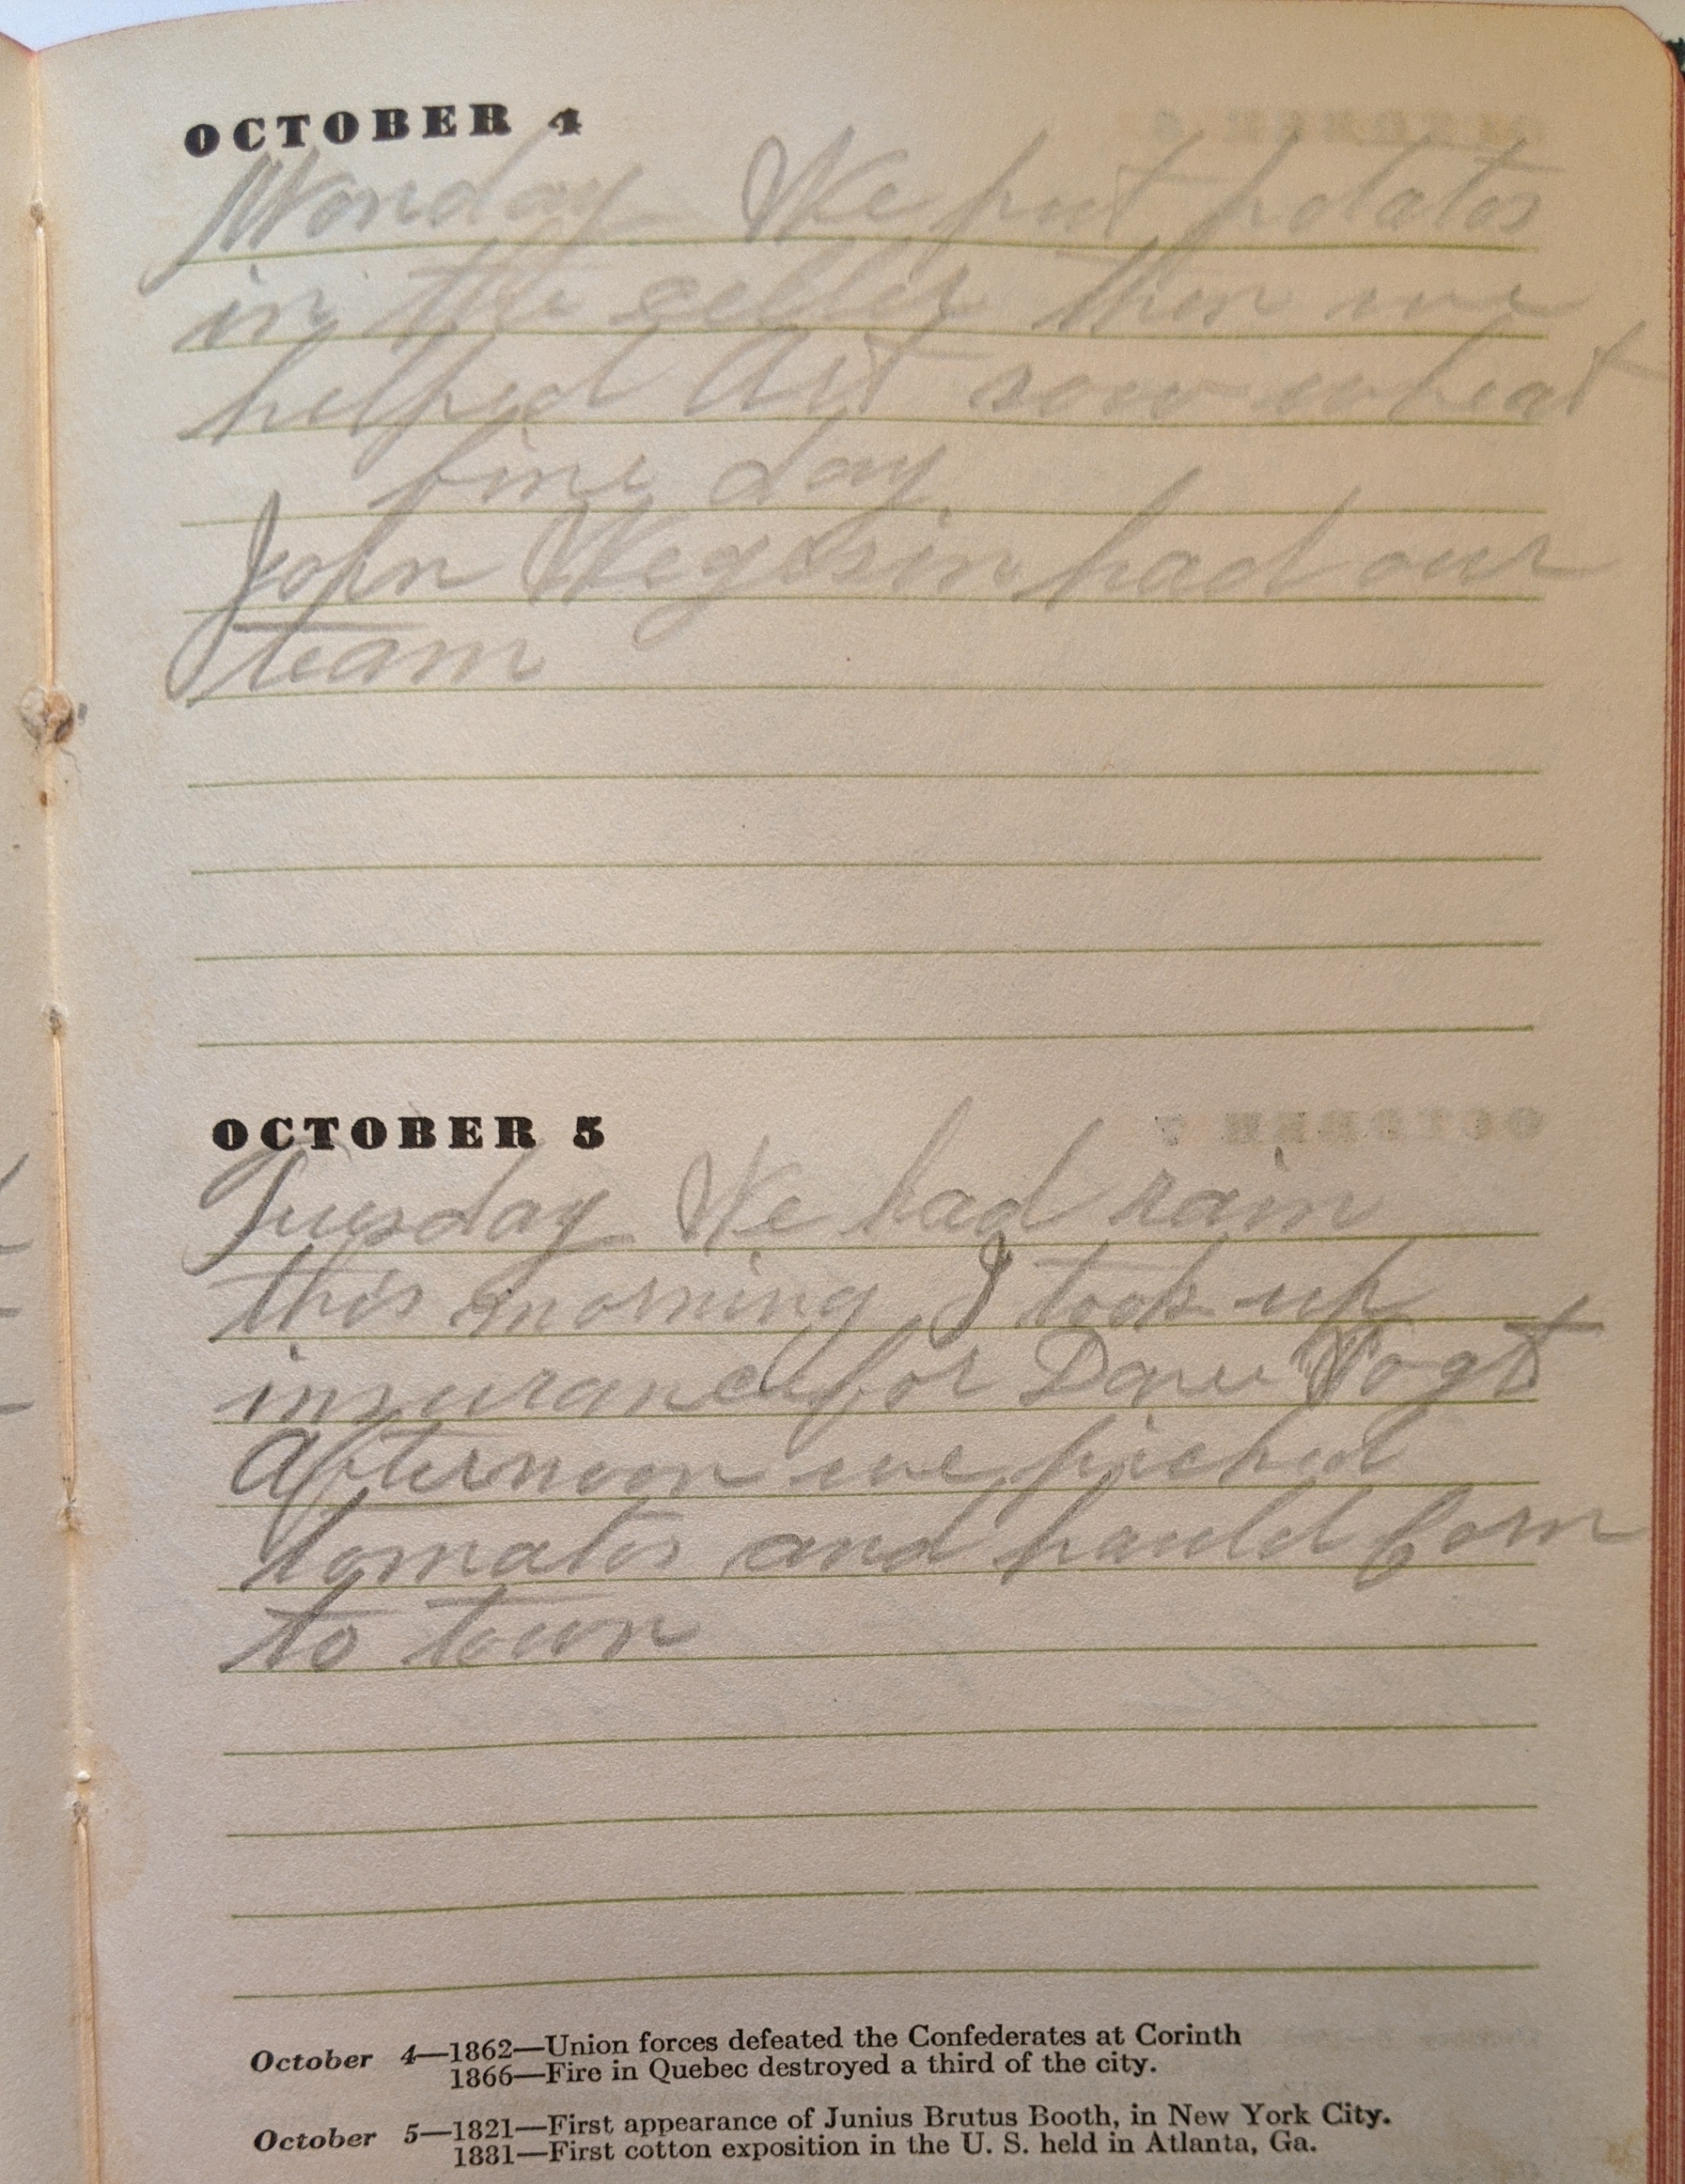 OCTOBER 4
Monday We put potatos
in the celler then we
helped Art sow wheat
fine day
John had our
team
OCTOBER 5
Tuesday We had rain
this morning I took up
insurance for Dave Vogt
Afternoon we picked
tomatos and hauld Corn
to town
October 4—1862—Union forces defeated the Confederates at Corinth
1866—Fire in Quebec destroyed a third of the city.
October 5—1821—First appearance of Junius Brutus Booth, in New York City.
1881—First cotton exposition in the U. S. held in Atlanta, Ga.